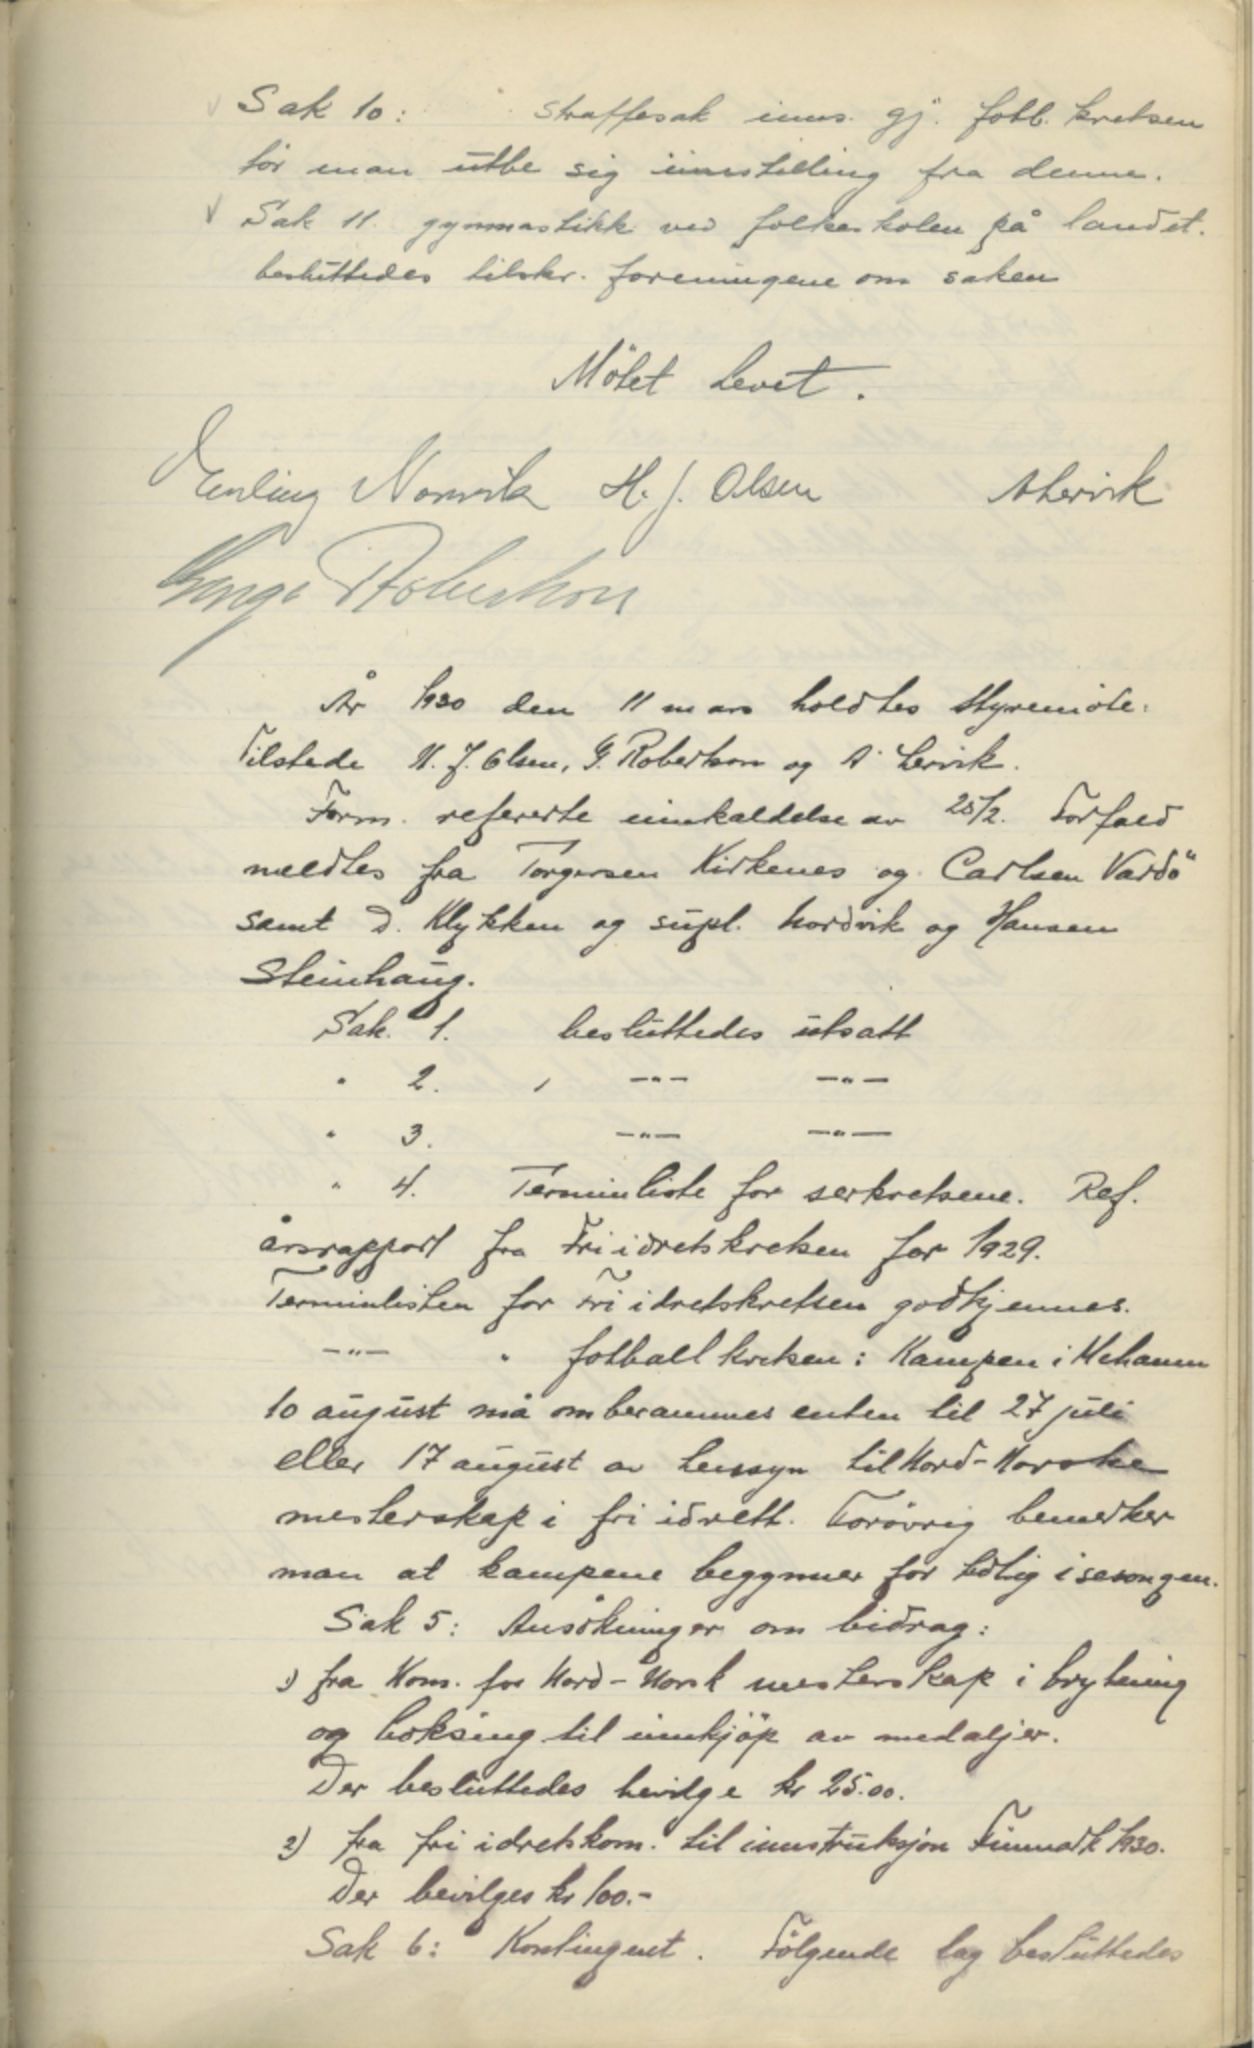 Sak 10: straffesak inns. gj. fotb. kretsen
før man utbe sig innstilling fra denne.
Sak 11. gymnastikk ved folkeskolen på landet.
besluttedes tilskr. foreningene om saken
Møtet hevet.
Erling Norvik H. J. Olsen A Lervik
Robertson
År 1930 den 11 mars holdtes styremøte.
Tilstede H. J. Olsen, G. Robertson og A. Lervik.
Form. refererte innkaldelse av 25/2. Forfald
meldtes fra Torgersen Kirkenes og Carlsen Vardö
samt D. Klykken og supl. Nordvik og Hansen
Steinhaug.
Sak 1. besluttedes utsatt
" 2. , -"- -"-
" 3. -"- -"-
" 4. Terminliste for serkretsene. Ref.
årsrapport fra Fri idretskretsen for 1929.
Terminlisten for Fri idretskretsen godkjennes.
-"- " fotball kretsen: Kampen i Mehamn
10 august må omberammes enten til 27 juli
eller 17 august av hensyn til Nord-Norske
mesterskap i fri idrett. Forøvrig bemerker
man at kampene begynner for tidlig i sesongen.
Sak 5: Ansökninger om bidrag:
1) fra Kom. for Nord-Norsk mesterskap i bryting
og boksing til innkjøp av medaljer.
Der besluttedes bevilge kr 25.00.
2) fra fri idretskom. til innstruksjon Finnmark 1930.
Der bevilges kr 100.-
Sak 6: Kontingent. Følgende lag besluttedes